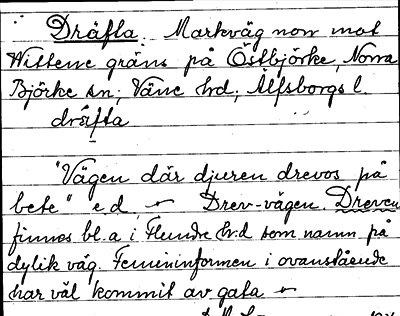 Dräfta. Markväg norr mot
Wittene gräns på Östbjörke, Norra
Björke sn; Väne hd; Älfsborgs l.
dräfta
"Vägen där djuren drevos på
bete" e.d. – Drev-vägen. Dreven
finnes bl.a i Flundre h:d som namn på
dylik väg. Femininformen i ovanstående
har väl kommit av gata –